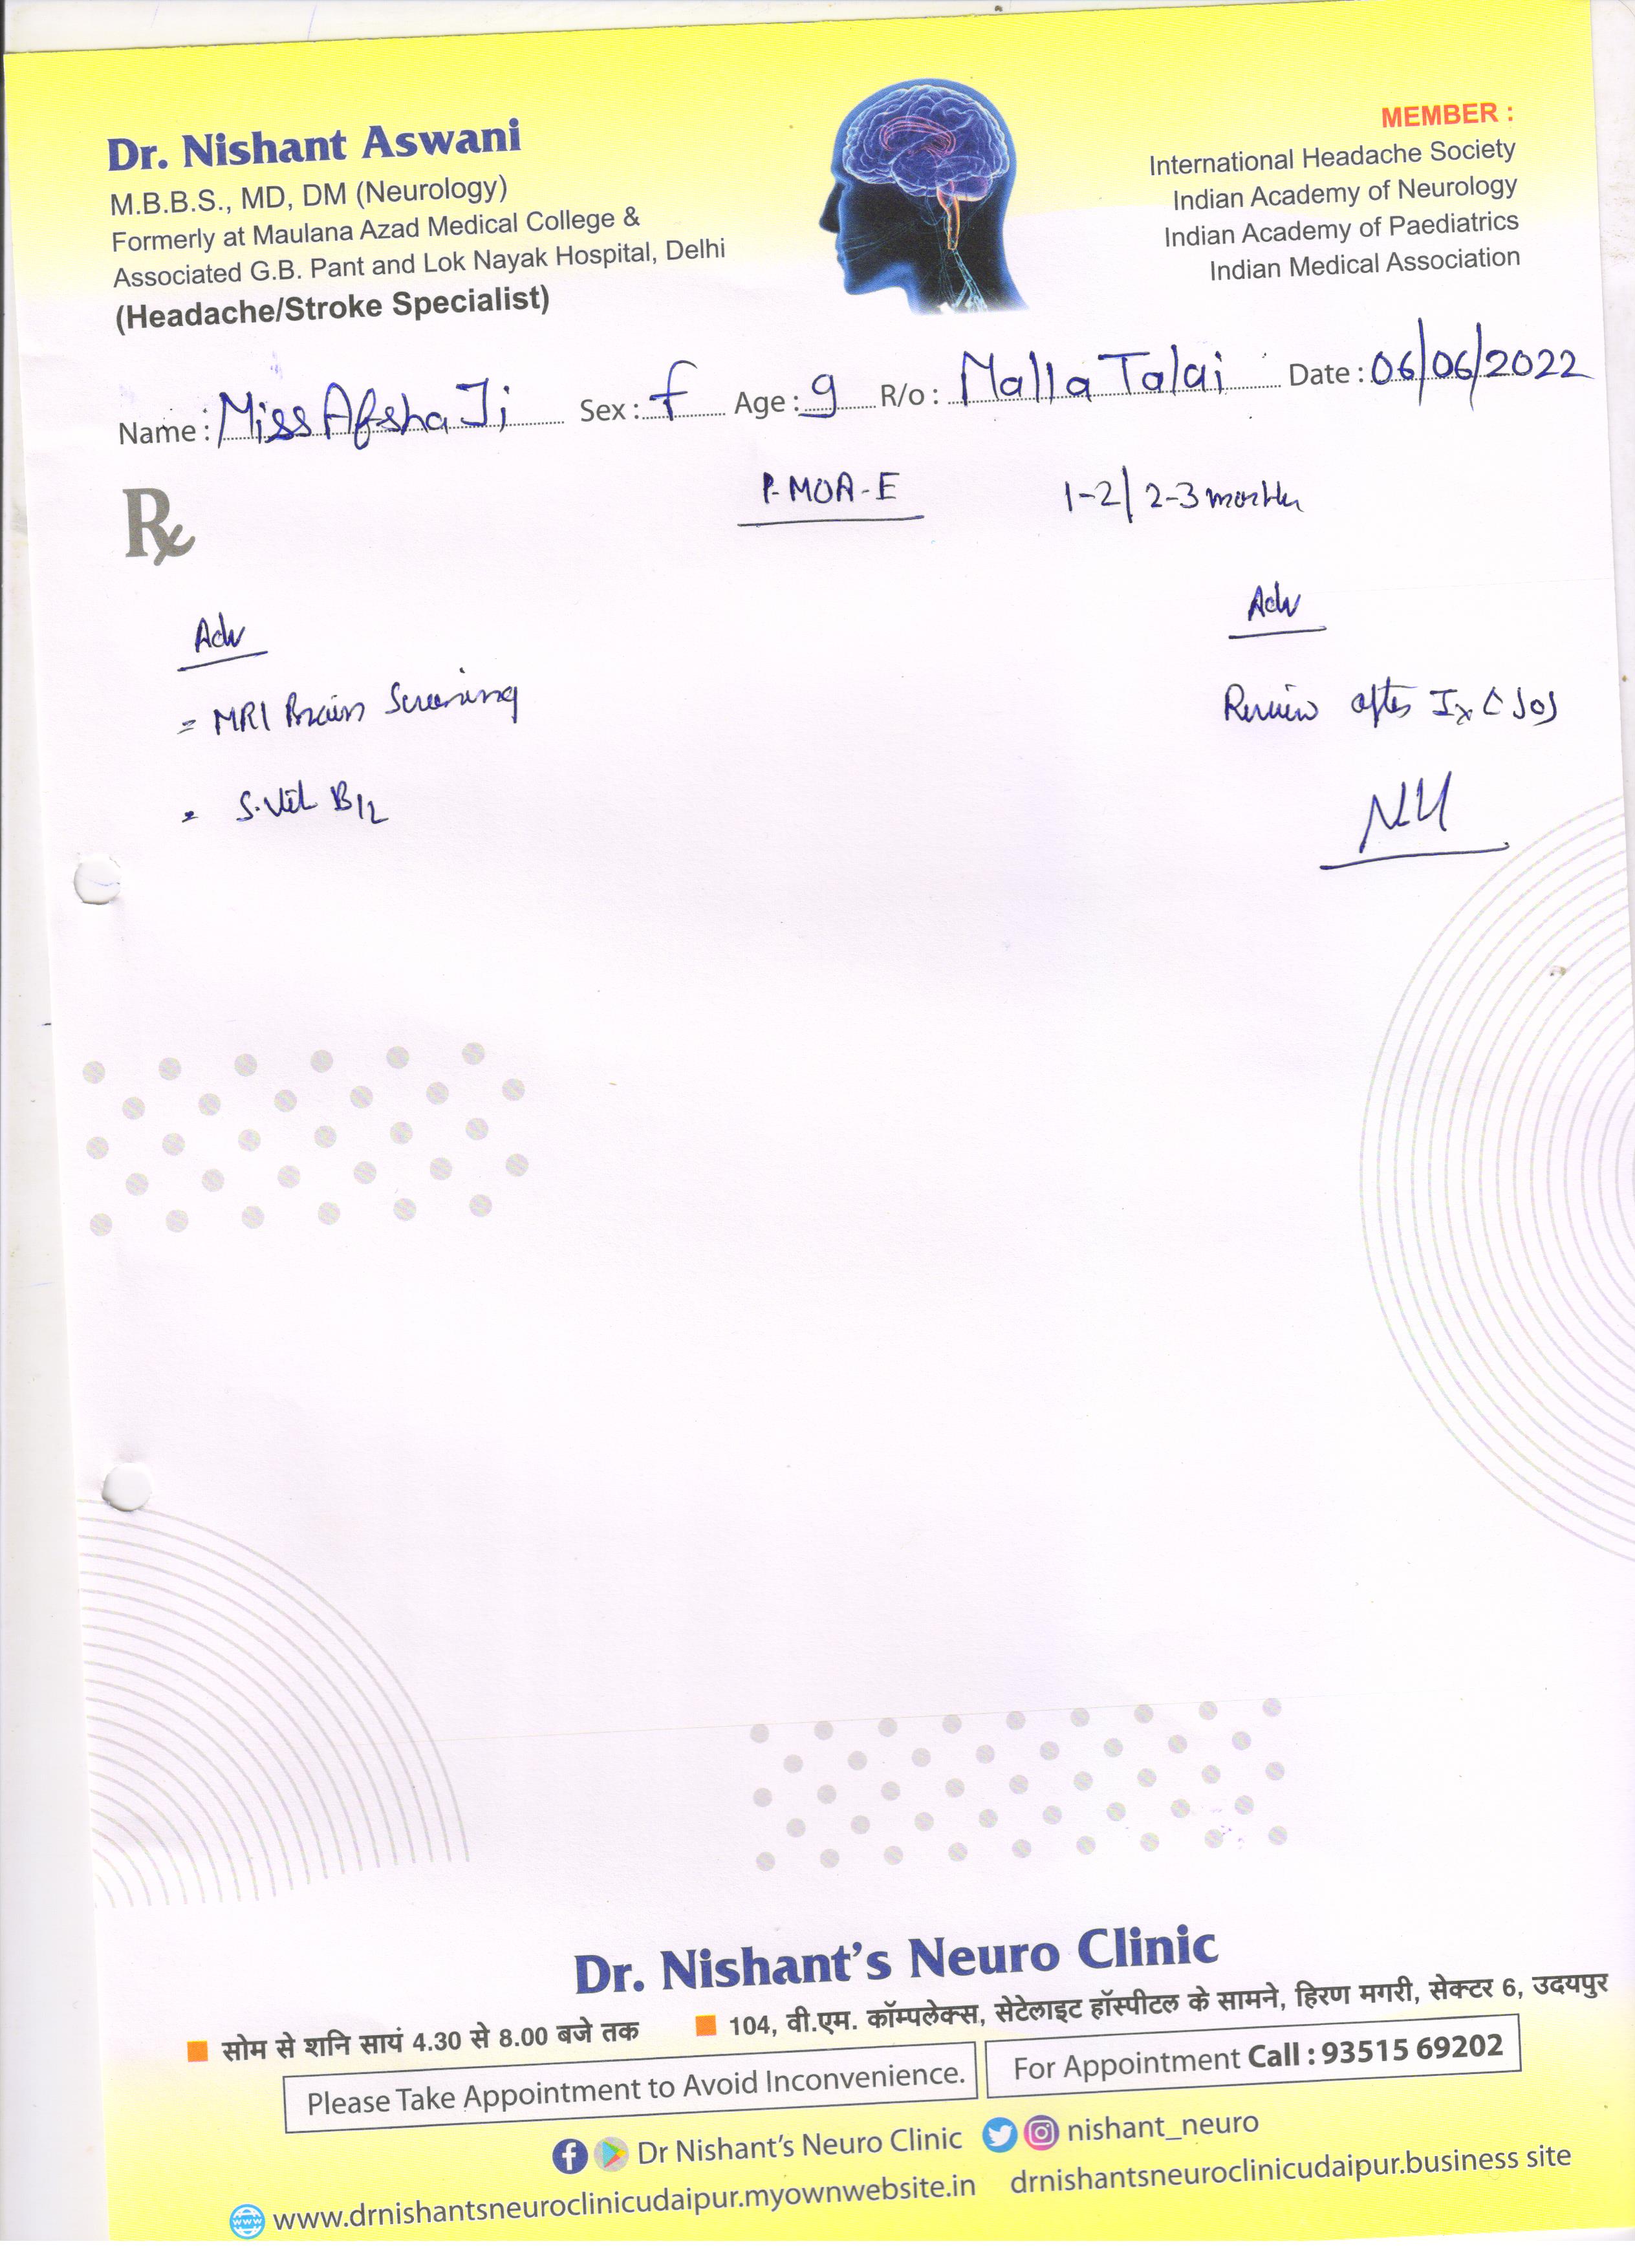 Dr. Nishant Aswani
M.B.B.S., MD, DM (Neurology)
Formerly at Maulana Azad Medical College &
Associated G.B. Pant and Lok Nayak Hospital, Delhi
(Headache/Stroke Specialist)
MEMBER :
International Headache Society
Indian Academy of Neurology
Indian Academy of Paediatrics
Indian Medical Association
Name : Miss Afsha Ji Sex : f Age : 9 R/o : Malla Talai Date : 06/06/2022
Rx
P-MOA-E 1-2/ 2-3 months
Adv
= MRI Brain Screening
= S. Vit B12
Adv
Review after Ix
Dr. Nishant's Neuro Clinic
सोम से शनि सायं 4.30 से 8.00 बजे तक 104, वी.एम. कॉम्पलेक्स, सेटेलाइट हॉस्पीटल के सामने, हिरण मगरी, सेक्टर 6, उदयपुर
Please Take Appointment to Avoid Inconvenience. For Appointment Call : 93515 69202
Dr Nishant's Neuro Clinic nishant_neuro
www www.drnishantsneuroclinicudaipur.myownwebsite.in drnishantsneuroclinicudaipur.business site